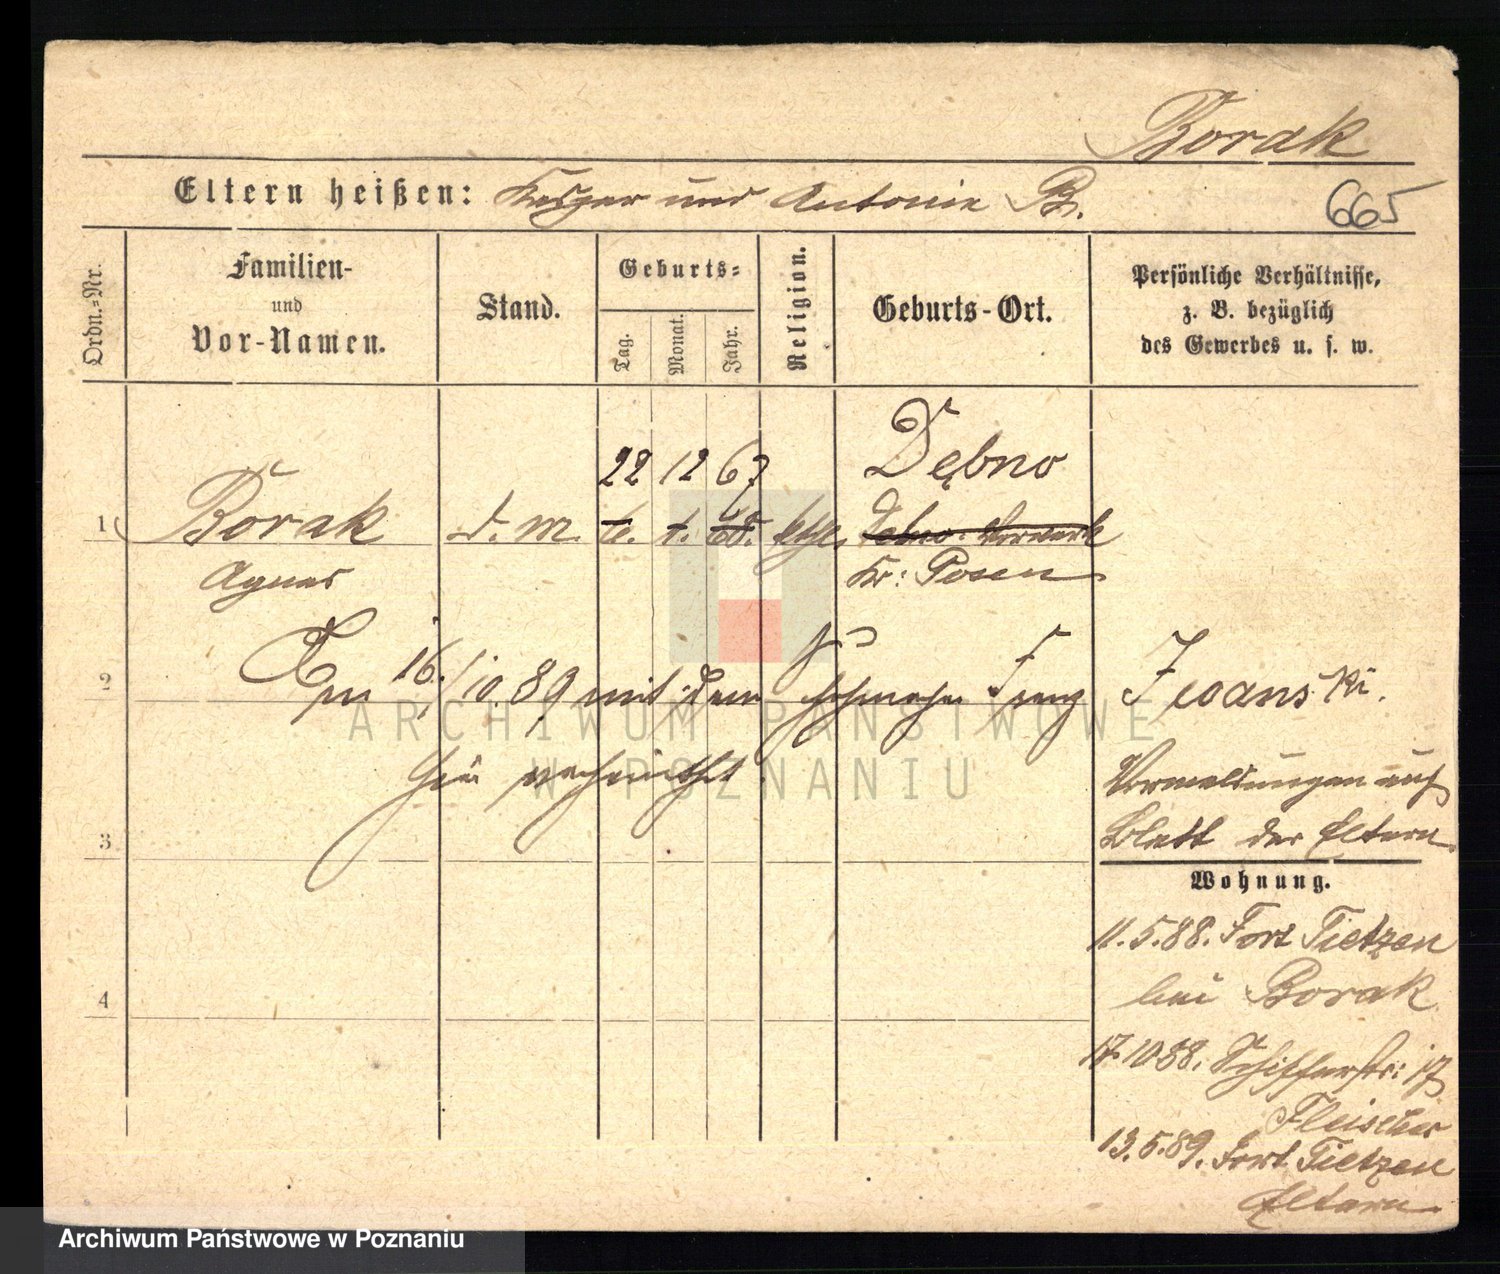 Borak
Eltern heißen: Kaspar und Antonie B.
665
Ordn.-Nr.
Familien-
und
Vor-Namen.
Stand.
Geburts-
Tag.
Monat.
Jahr.
Religion.
Geburts-Ort.
Persönliche Verhältnisse,
z. B. bezüglich
des Gewerbes u. s. w.
22 12 67 Dębno
1 Borak d. m. 6. 1. 68. kth. Dębno Vorwerk
Agnes Kr: Posen
2 Am 16/10.89 mit dem Franz Iwanski.
hier verheirathet
ARCHIWUM PAŃSTWOWE
W POZNANIU
Vormeldungen auf
3 Blatt der Eltern
Wohnung.
11.5.88. Fort Tietzen
4 bei Borak
17.10 88. Schifferstr: 17
Fleischer
13.5.89. Fort Tietzen
Eltern
Archiwum Państwowe w Poznaniu